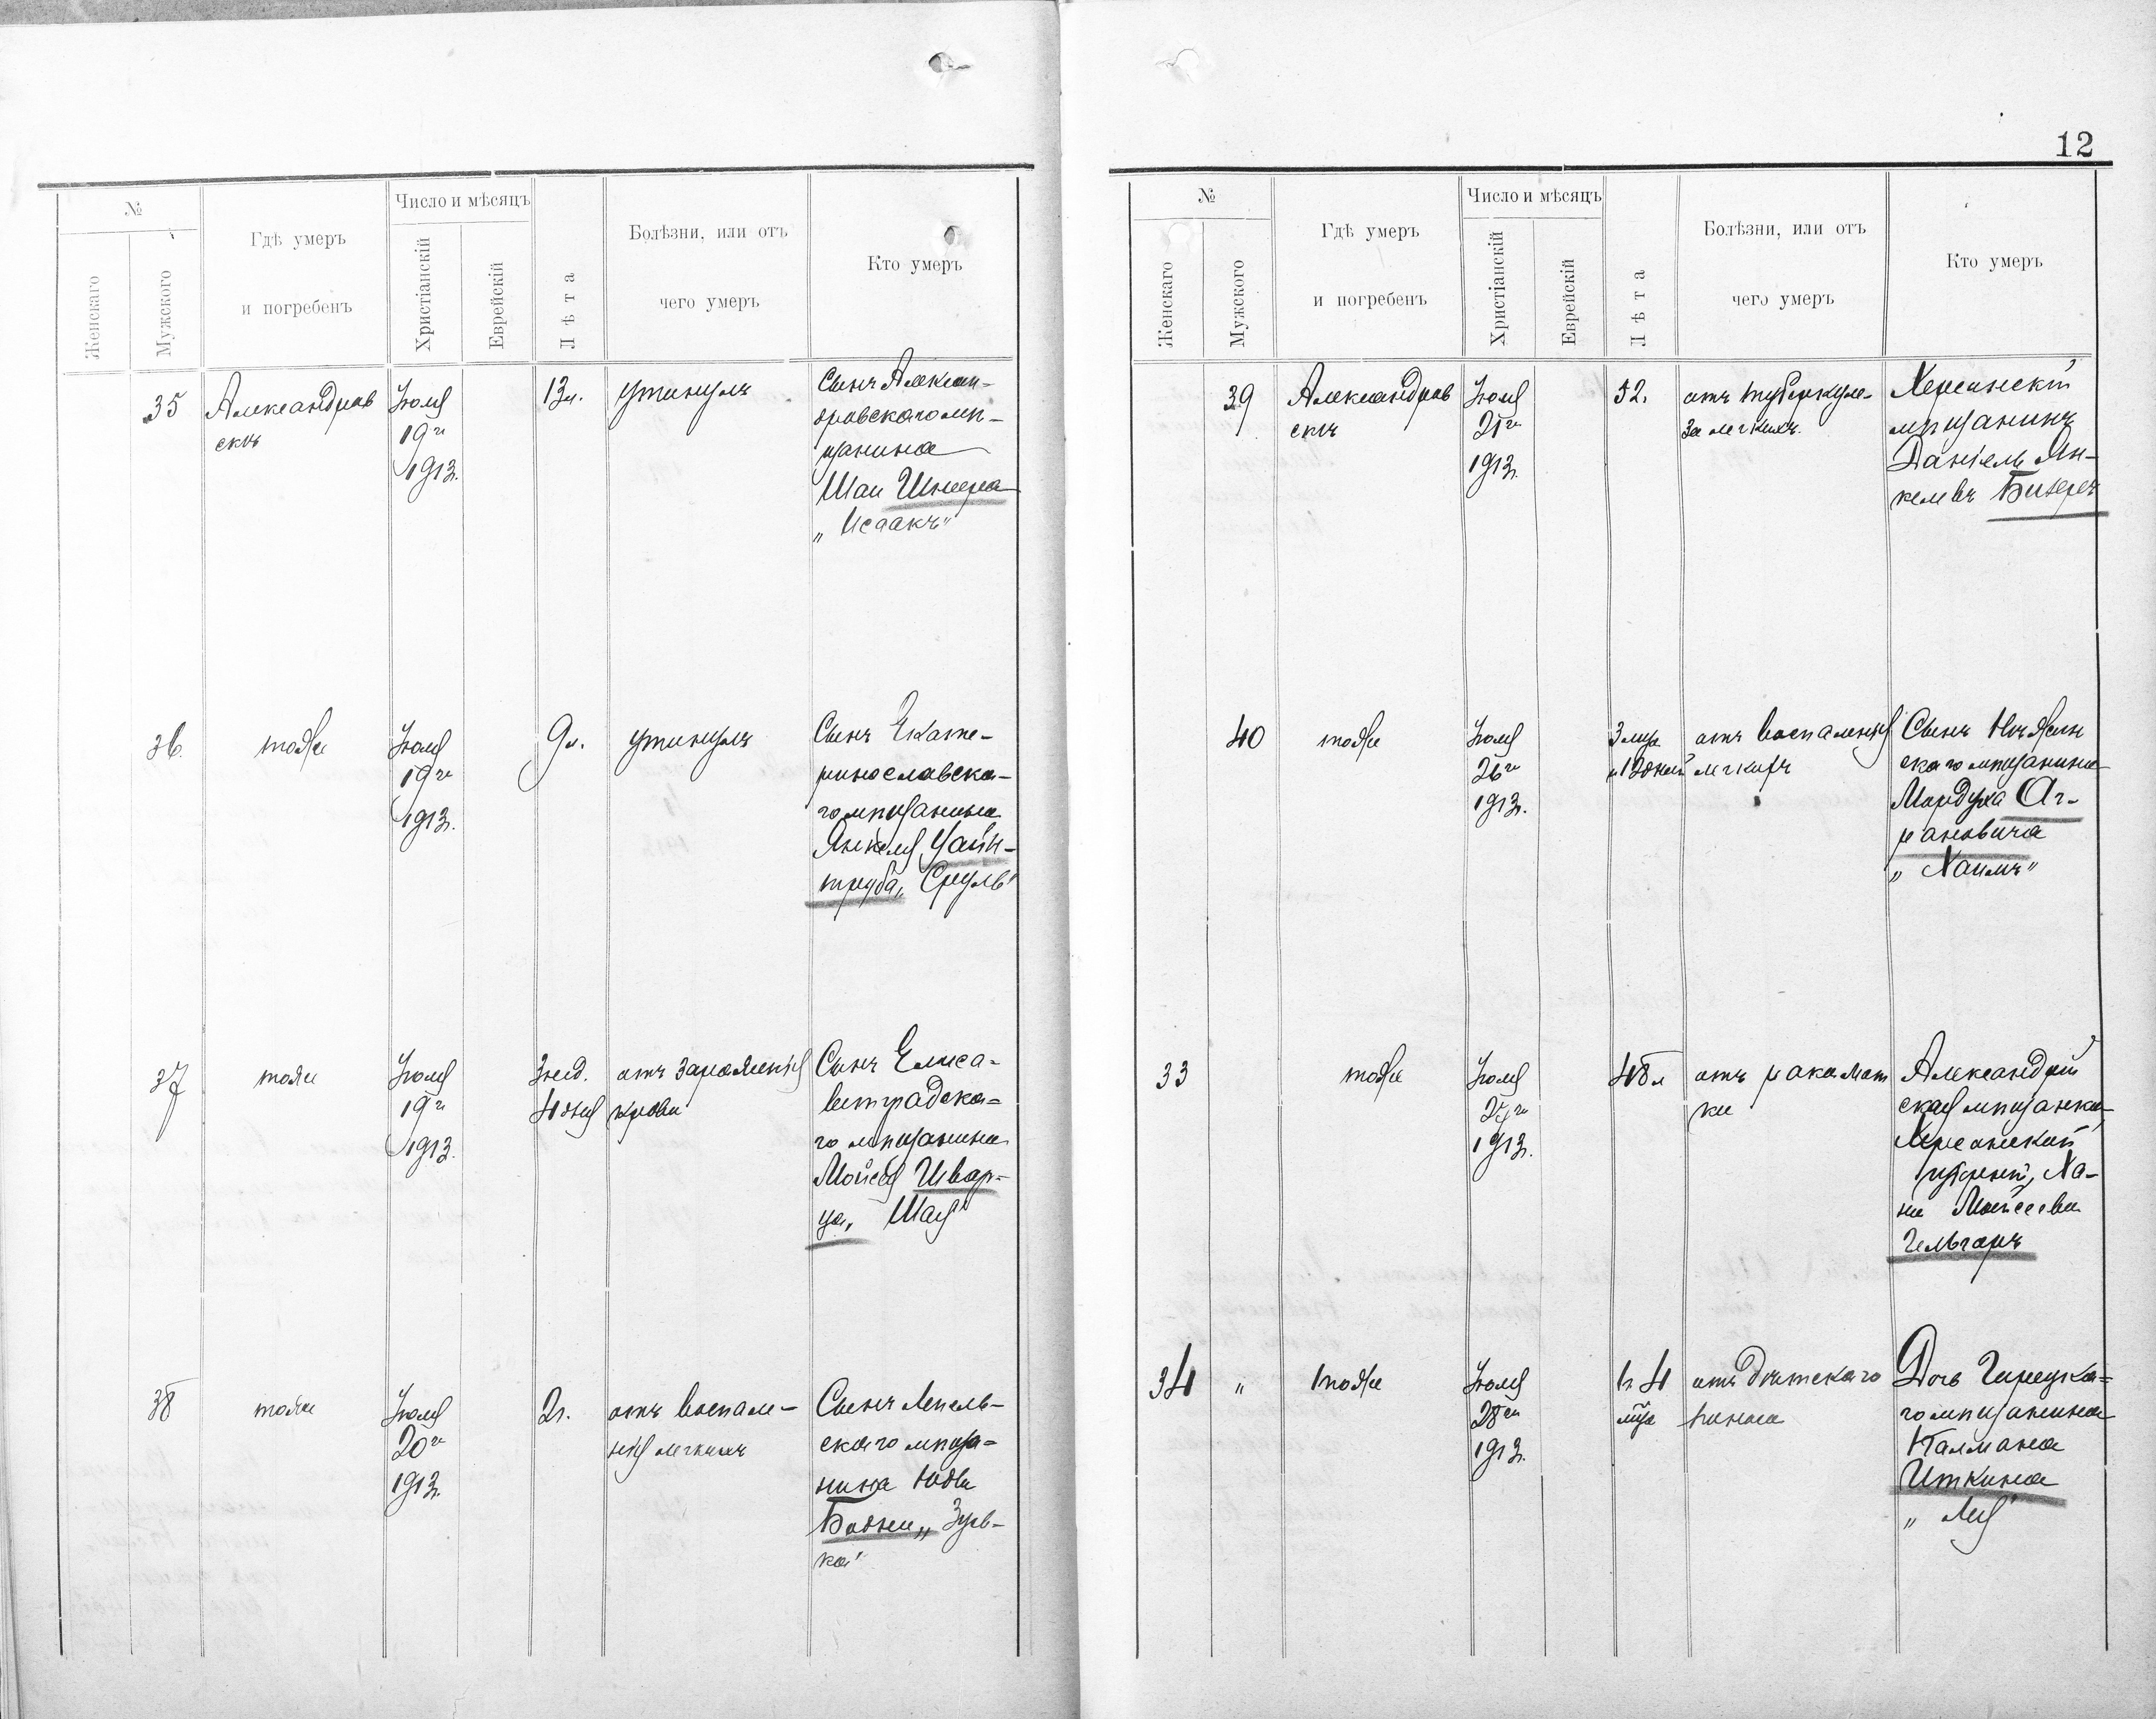 №
Женскаго
Мужского
Гдѣ умеръ
и погребенъ
Число и мѣсяцъ
Христіанскій
Еврейскій
Лѣта
Болѣзни, или отъ
чего умеръ
Кто умеръ
35
Александров
скъ
Іюля
19го
1913г.
13л.
утонулъ
Сынъ Алексан-
дровскаго мѣ-
щанина
Шаи Шнеера
„Исаакъ"
36.
тоже
Іюля
19го
1913г.
9л.
утонулъ
Сынъ Екате-
ринославска-
го мѣщанина
Янкеля Уайн-
труба „Сруль"
37
тоже
Іюля
19го
1913г.
3 нед.
4 дня
отъ зараженія
крови
Сынъ Елиса-
ветградска-
го мѣщанина
Мойсея Швар-
ца „Шая"
38
тоже
Іюля
20го
1913г.
2г.
отъ воспале-
нія легкихъ
Сынъ Лепель-
скаго мѣща-
нина Юды
„Зусь-
ка"
12
№
Женскаго
Мужского
Гдѣ умеръ
и погребенъ
Число и мѣсяцъ
Христіанскій
Еврейскій
Лѣта
Болѣзни, или отъ
чего умеръ
Кто умеръ
39
Александров
скъ
Іюля
21го
1913г.
52.
отъ туберкуле-
за легкихъ.
Херсонскій
мѣщанинъ
Даніель Ян-
келевъ
40
тоже
Іюля
26го
1913г.
3 мца
и 12 дней
отъ воспаленія
легкихъ
Сынъ Нѣжин
скаго мѣщанина
Мордуха Аг-
рановича
„Хаимъ"
33
тоже
Іюля
27го
1913г.
48л
отъ рака мат
ки
Александрій
ская мѣщанка,
Херсонской
губерніи, Ха-
на Мойсеева
Гельгаръ
34
"
тоже
Іюля
28го
1913г.
1г. 4
мца
отъ дѣтскаго
поноса
Дочь Горецка-
го мѣщанина
Калмана
Иткина
„Лея"